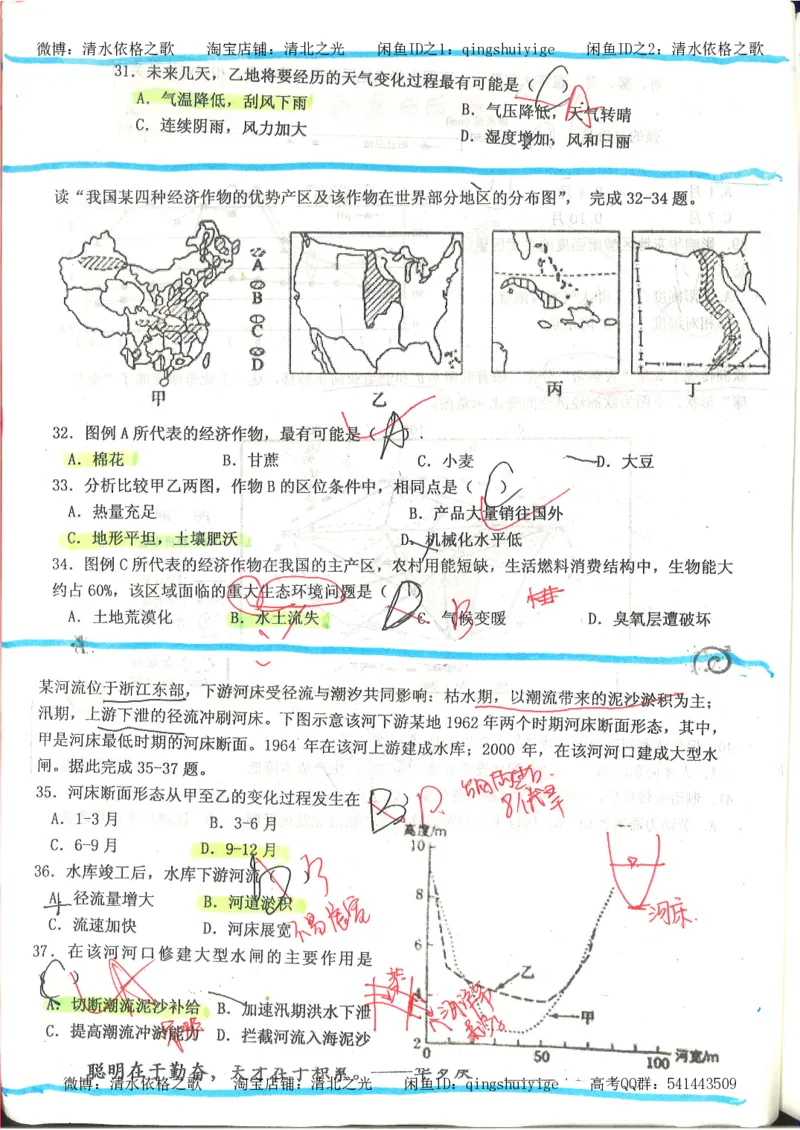 微博：清水依格之歌　　淘宝店铺：清北之光　　闲鱼ID之1：qingshuiyige　　闲鱼ID之2：清水依格之歌
31．未来几天，乙地将要经历的天气变化过程最有可能是（ C ） A
A．气温降低，刮风下雨　　B．气压降低，天气转晴
C．连续阴雨，风力加大　　D．湿度增加，风和日丽
读“我国某四种经济作物的优势产区及该作物在世界部分地区的分布图”， 完成 32-34 题。
A
B
C
D
甲　　乙　　丙　　丁
32．图例 A 所代表的经济作物，最有可能是（ A ）．
A．棉花　　B．甘蔗　　C．小麦　　D．大豆
33．分析比较甲乙两图，作物 B 的区位条件中，相同点是（ C ）
A．热量充足　　B．产品大量销往国外
C．地形平坦，土壤肥沃　　D．机械化水平低
34．图例 C 所代表的经济作物在我国的主产区，农村用能短缺，生活燃料消费结构中，生物能大
约占 60%，该区域面临的重大生态环境问题是（ D ） B
A．土地荒漠化　　B．水土流失　　C．气候变暖　　D．臭氧层遭破坏
某河流位于浙江东部，下游河床受径流与潮汐共同影响：枯水期，以潮流带来的泥沙淤积为主；
汛期，上游下泄的径流冲刷河床。下图示意该河下游某地 1962 年两个时期河床断面形态，其中，
甲是河床最低时期的河床断面。1964 年在该河上游建成水库；2000 年，在该河河口建成大型水
闸。据此完成 35-37 题。
35．河床断面形态从甲至乙的变化过程发生在（ B ） D
A．1-3 月　　B．3-6 月
C．6-9 月　　D．9-12 月
36．水库竣工后，水库下游河流（ D ） B
A．径流量增大　　B．河道淤积
C．流速加快　　D．河床展宽
不易展宽
37．在该河河口修建大型水闸的主要作用是
（ C ） A
A．切断潮流泥沙补给　　B．加速汛期洪水下泄
C．提高潮流冲淤能力　　D．拦截河流入海泥沙
高度/m
10
8
6
4
2
0　　50　　100　河宽/m
乙
甲
河床
聪明在于勤奋，天才在于积累。——华罗庚
微博：清水依格之歌　　淘宝店铺：清北之光　　闲鱼ID：qingshuiyige　　高考QQ群：541443509